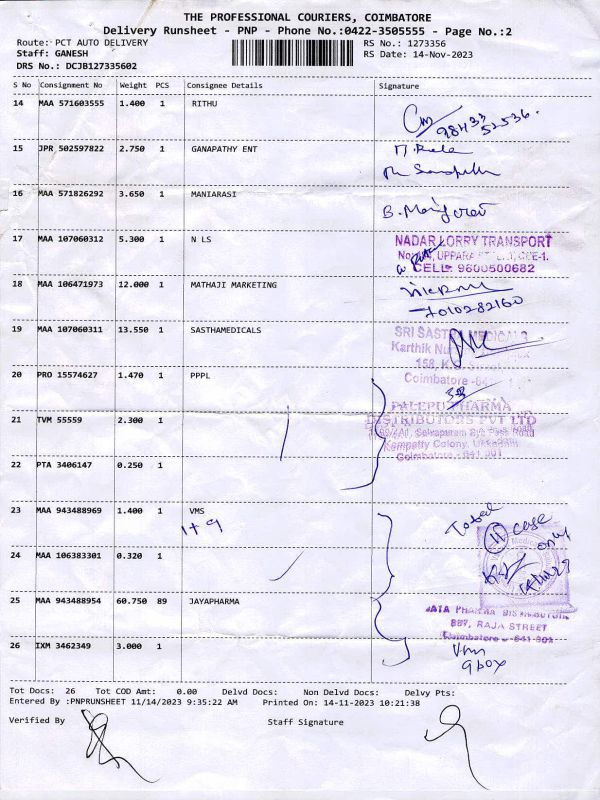 THE PROFESSIONAL COURIERS, COIMBATORE
Delivery Runsheet - PNP - Phone No.:0422-3505555 - Page No.:2
Route: PCT AUTO DELIVERY RS No.: 1273356
Staff: GANESH RS Date: 14-Nov-2023
DRS No.: DCJB127335602
S No Consignment No Weight PCS Consignee Details Signature
14 MAA 571603555 1.400 1 RITHU
98433 52536.
15 JPR 502597822 2.750 1 GANAPATHY ENT
16 MAA 571826292 3.650 1 MANIARASI
B.
17 MAA 107060312 5.300 1 N LS
NADAR LORRY TRANSPORT
CELL: 9600500682
18 MAA 106471973 12.000 1 MATHAJI MARKETING
7010282160
19 MAA 107060311 13.550 1 SASTHAMEDICALS
SRI SASTHA MEDICALS
Karthik
158,
Coimbatore
20 PRO 15574627 1.470 1 PPPL
PALEPU PHARMA
DISTRIBUTORS PVT LTD
21 TVM 55559 2.300 1
Kempatty Colony, Ukkadam
Coimbatore - 641 001
22 PTA 3406147 0.250 1
23 MAA 943488969 1.400 1 VMS
1+9
Total
11 case
only
24 MAA 106383301 0.320 1
25 MAA 943488954 60.750 89 JAYAPHARMA
889, RAJA STREET
Coimbatore
26 IXM 3462349 3.000 1
Vms
9 box
Tot Docs: 26 Tot COD Amt: 0.00 Delvd Docs: Non Delvd Docs: Delvy Pts:
Entered By :PNPRUNSHEET 11/14/2023 9:35:22 AM Printed On: 14-11-2023 10:21:38
Verified By Staff Signature